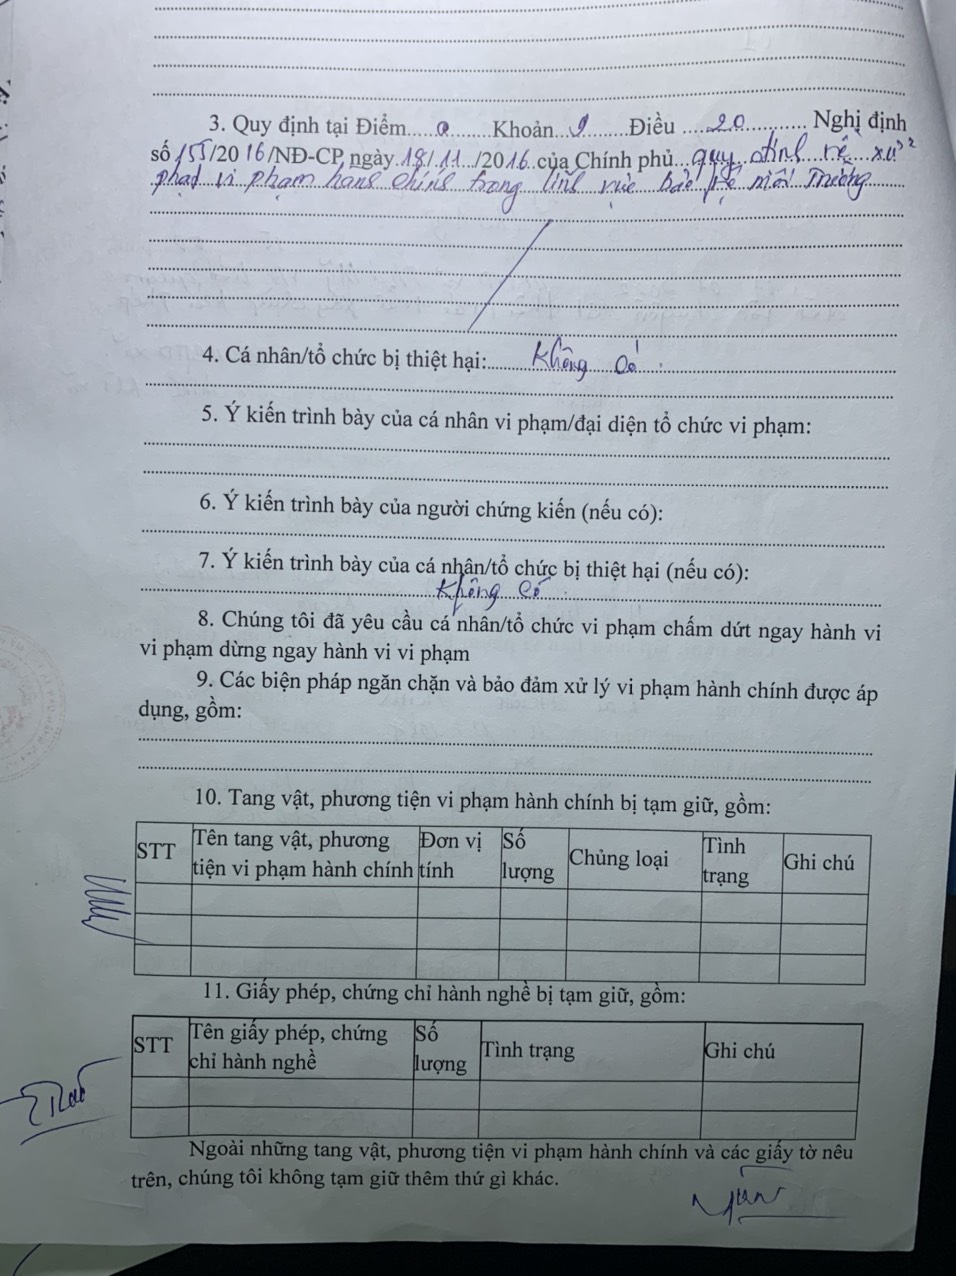 3. Quy định tại Điểm.....a........Khoản..9.......Điều .....20............ Nghị định
số 155/2016/NĐ-CP ngày.18/.11.../2016.của Chính phủ...quy định về xử
phạt vi phạm hành chính trong lĩnh vực bảo vệ môi trường
4. Cá nhân/tổ chức bị thiệt hại: Không có
5. Ý kiến trình bày của cá nhân vi phạm/đại diện tổ chức vi phạm:
6. Ý kiến trình bày của người chứng kiến (nếu có):
7. Ý kiến trình bày của cá nhân/tổ chức bị thiệt hại (nếu có):
Không có
8. Chúng tôi đã yêu cầu cá nhân/tổ chức vi phạm chấm dứt ngay hành vi
vi phạm dừng ngay hành vi vi phạm
9. Các biện pháp ngăn chặn và bảo đảm xử lý vi phạm hành chính được áp
dụng, gồm:
10. Tang vật, phương tiện vi phạm hành chính bị tạm giữ, gồm:
STT Tên tang vật, phương tiện vi phạm hành chính Đơn vị tính Số lượng Chủng loại Tình trạng Ghi chú
11. Giấy phép, chứng chỉ hành nghề bị tạm giữ, gồm:
STT Tên giấy phép, chứng chỉ hành nghề Số lượng Tình trạng Ghi chú
Ngoài những tang vật, phương tiện vi phạm hành chính và các giấy tờ nêu
trên, chúng tôi không tạm giữ thêm thứ gì khác.